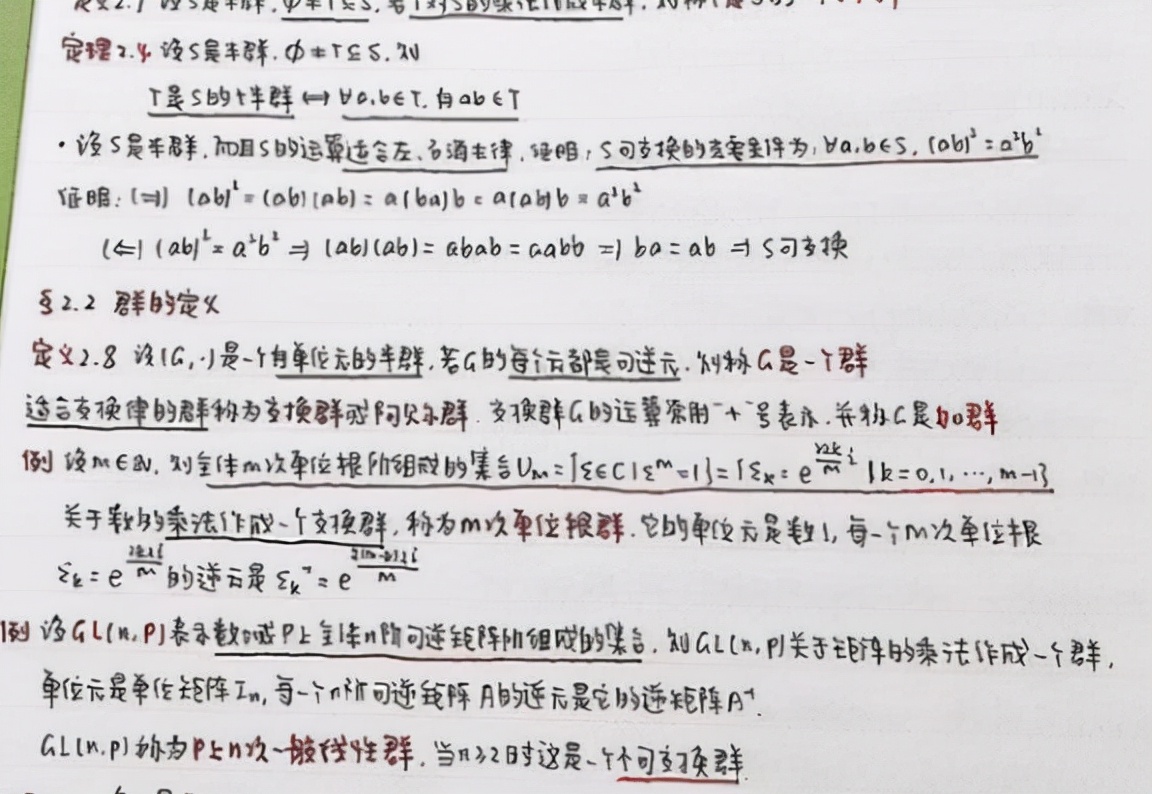 定义2.7 设S是半群,ф≠T⊆S,若T对S的乘法作成半群,则称T是S的
定理2.4 设S是半群,ф≠T⊆S,则
T是S的子半群⟺∀a,b∈T,有ab∈T
·设S是半群,而且S的运算适合左、右消去律,证明:S可交换的充要条件为,∀a,b∈S,(ab)²=a²b²
证明:(⇒) (ab)²=(ab)(ab)=a(ba)b=a(ab)b=a²b²
(⇐) (ab)²=a²b² ⇒ (ab)(ab)=abab=aabb ⇒ ba=ab ⇒ S可交换
§2.2 群的定义
定义2.8 设(G,·)是一个有单位元的半群,若G的每个元都是可逆元,则称G是一个群
适合交换律的群称为交换群或阿贝尔群.交换群G的运算常用"+"号表示,并称G是加群
例 设m∈N,则全体m次单位根所组成的集合Um={ε∈C|ε^m=1}={εk=e^(2kπi/m)|k=0,1,…,m-1}
关于数的乘法作成一个交换群,称为m次单位根群.它的单位元是数1,每一个m次单位根
εk=e^(2kπi/m)的逆元是εk⁻¹=e^(2(m-k)πi/m)
例 设GL(n,P)表示数域P上全体n阶可逆矩阵所组成的集合,则GL(n,P)关于矩阵的乘法作成一个群,
单位元是单位矩阵In,每一个n阶可逆矩阵A的逆元是它的逆矩阵A⁻¹.
GL(n,P)称为P上n次一般线性群,当n≥2时这是一个不可交换群.